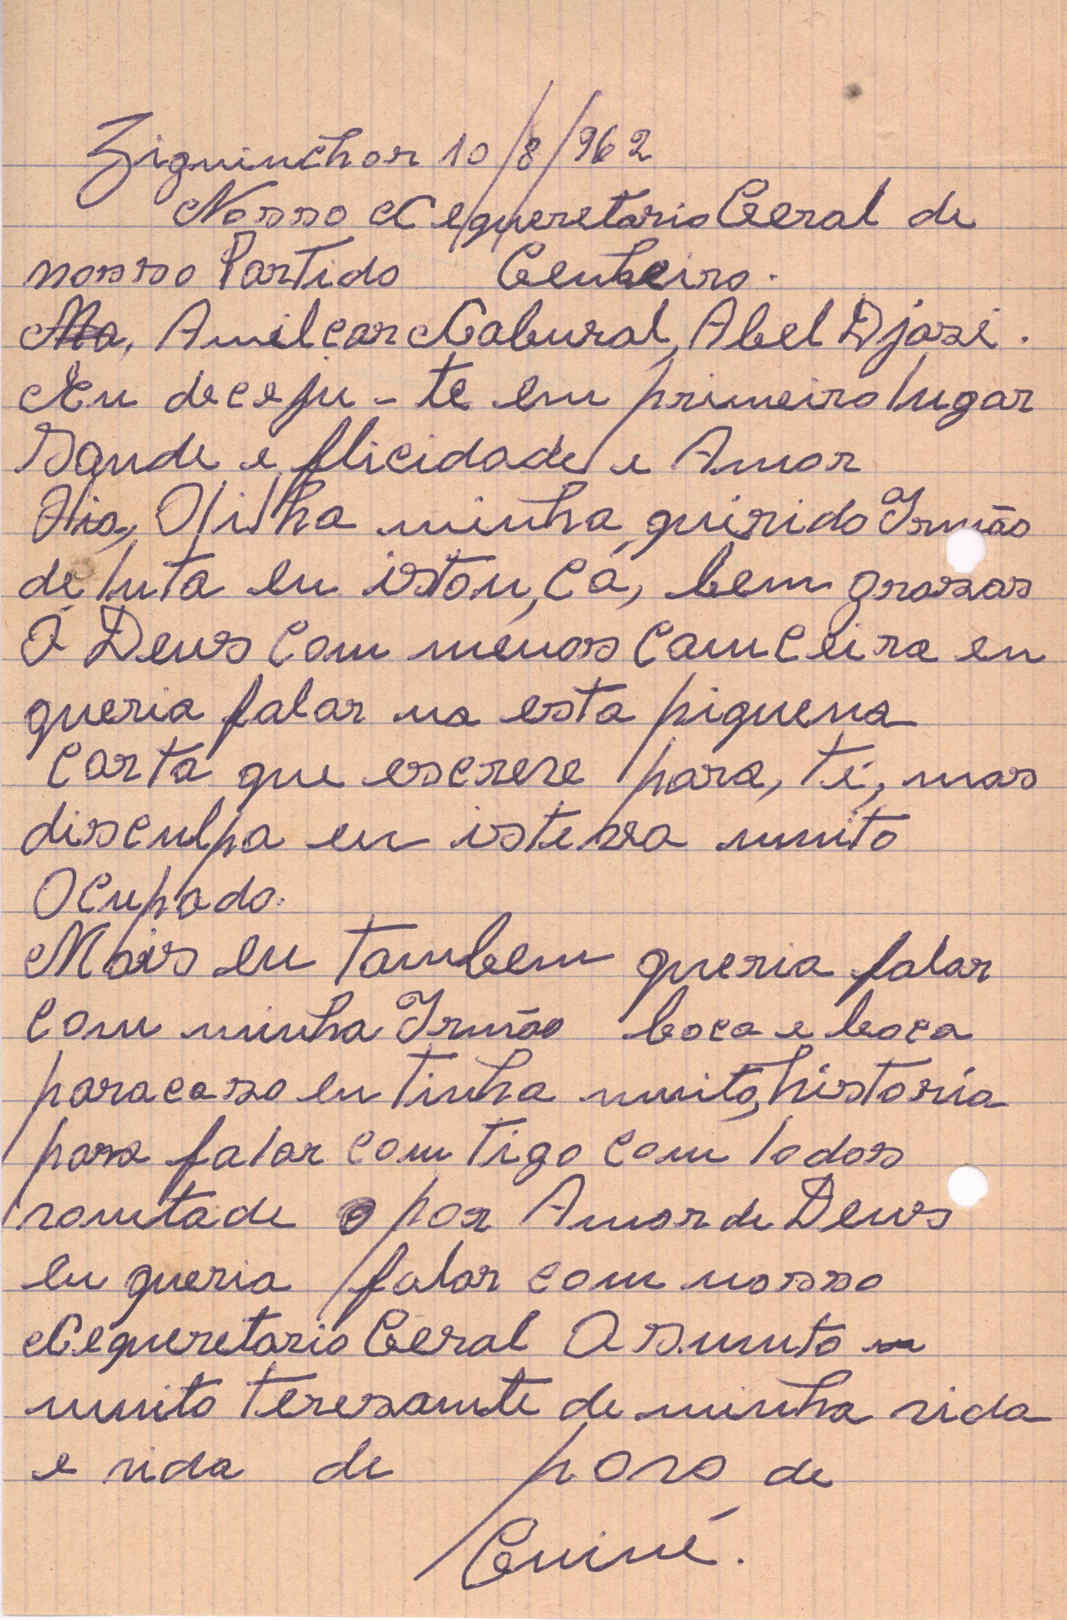 Ziguinchor 10/8/962
Nosso Cequeretario Geral de
nosso Partido Genheiro.
Ma, Amilcar Cabural, Abel Djasi.
Eu deceju-te em primeiro lugar
Saude e flicidade e Amor
Olilha minha quirido Irmão
de luta eu istou, cá, bem grasas
Á Deus com menos camceira eu
queria falar na esta piquena
carta que escreve para, té, mas
disculpa eu isteva muito
Ocupado.
Mais eu tambem queria falar
com minha Irmão boca e boca
paracaso eu tinha muito, historia
para falar com tigo com todos
vontade por Amor de Deus
eu queria falar com nosso
Cequeretario Geral Osunto
muito teresante de minha vida
e vida de povo de
Guiné.